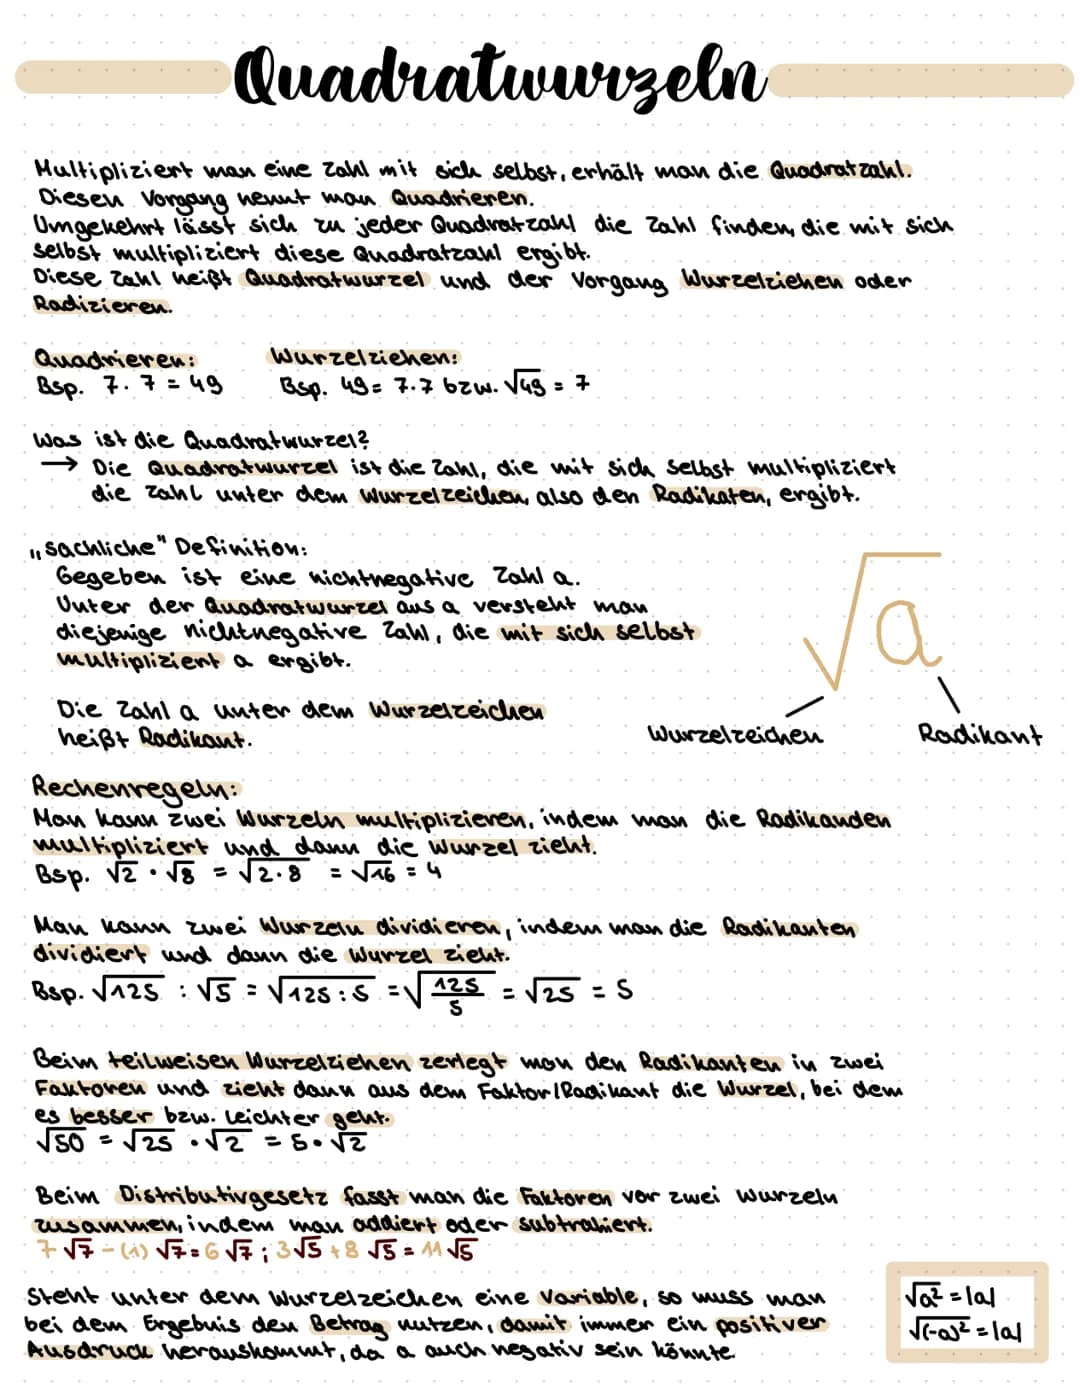 Quadratwurzeln
Multipliziert man eine Zahl mit sich selbst, erhält man die Quadratzahl.
Diesen Vorgang nennt man Quadrieren.
Umgekehrt lässt sich zu jeder Quadratzahl die Zahl finden, die mit sich
selbst multipliziert diese Quadratzahl ergibt.
Diese Zahl heißt Quadratwurzel und der Vorgang Wurzelziehen oder
Radizieren.
Quadrieren: Wurzelziehen:
Bsp. 7·7 = 49 Bsp. 49 = 7·7 bzw. √49 = 7
Was ist die Quadratwurzel?
→ Die Quadratwurzel ist die Zahl, die mit sich selbst multipliziert
die Zahl unter dem Wurzelzeichen, also den Radikaten, ergibt.
„sachliche" Definition:
Gegeben ist eine nichtnegative Zahl a.
Unter der Quadratwurzel aus a versteht man
diejenige nichtnegative Zahl, die mit sich selbst
multipliziert a ergibt.
√a
Die Zahl a unter dem Wurzelzeichen
heißt Radikant.
Wurzelzeichen Radikant
Rechenregeln:
Man kann zwei Wurzeln multiplizieren, indem man die Radikanden
multipliziert und dann die Wurzel zieht.
Bsp. √2 · √8 = √2·8 = √16 = 4
Man kann zwei Wurzeln dividieren, indem man die Radikanten
dividiert und dann die Wurzel zieht.
Bsp. √125 : √5 = √125:5 = √125/5 = √25 = 5
Beim teilweisen Wurzelziehen zerlegt man den Radikanten in zwei
Faktoren und zieht dann aus dem Faktor/Radikant die Wurzel, bei dem
es besser bzw. leichter geht.
√50 = √25 · √2 = 5·√2
Beim Distributivgesetz fasst man die Faktoren vor zwei Wurzeln
zusammen, indem man addiert oder subtrahiert.
7√7 - (1)√7 = 6√7 ; 3√5 + 8√5 = 11√5
Steht unter dem Wurzelzeichen eine Variable, so muss man
bei dem Ergebnis den Betrag nutzen, damit immer ein positiver
Ausdruck herauskommt, da a auch negativ sein könnte.
√a² = |a|
√(-a)² = |a|